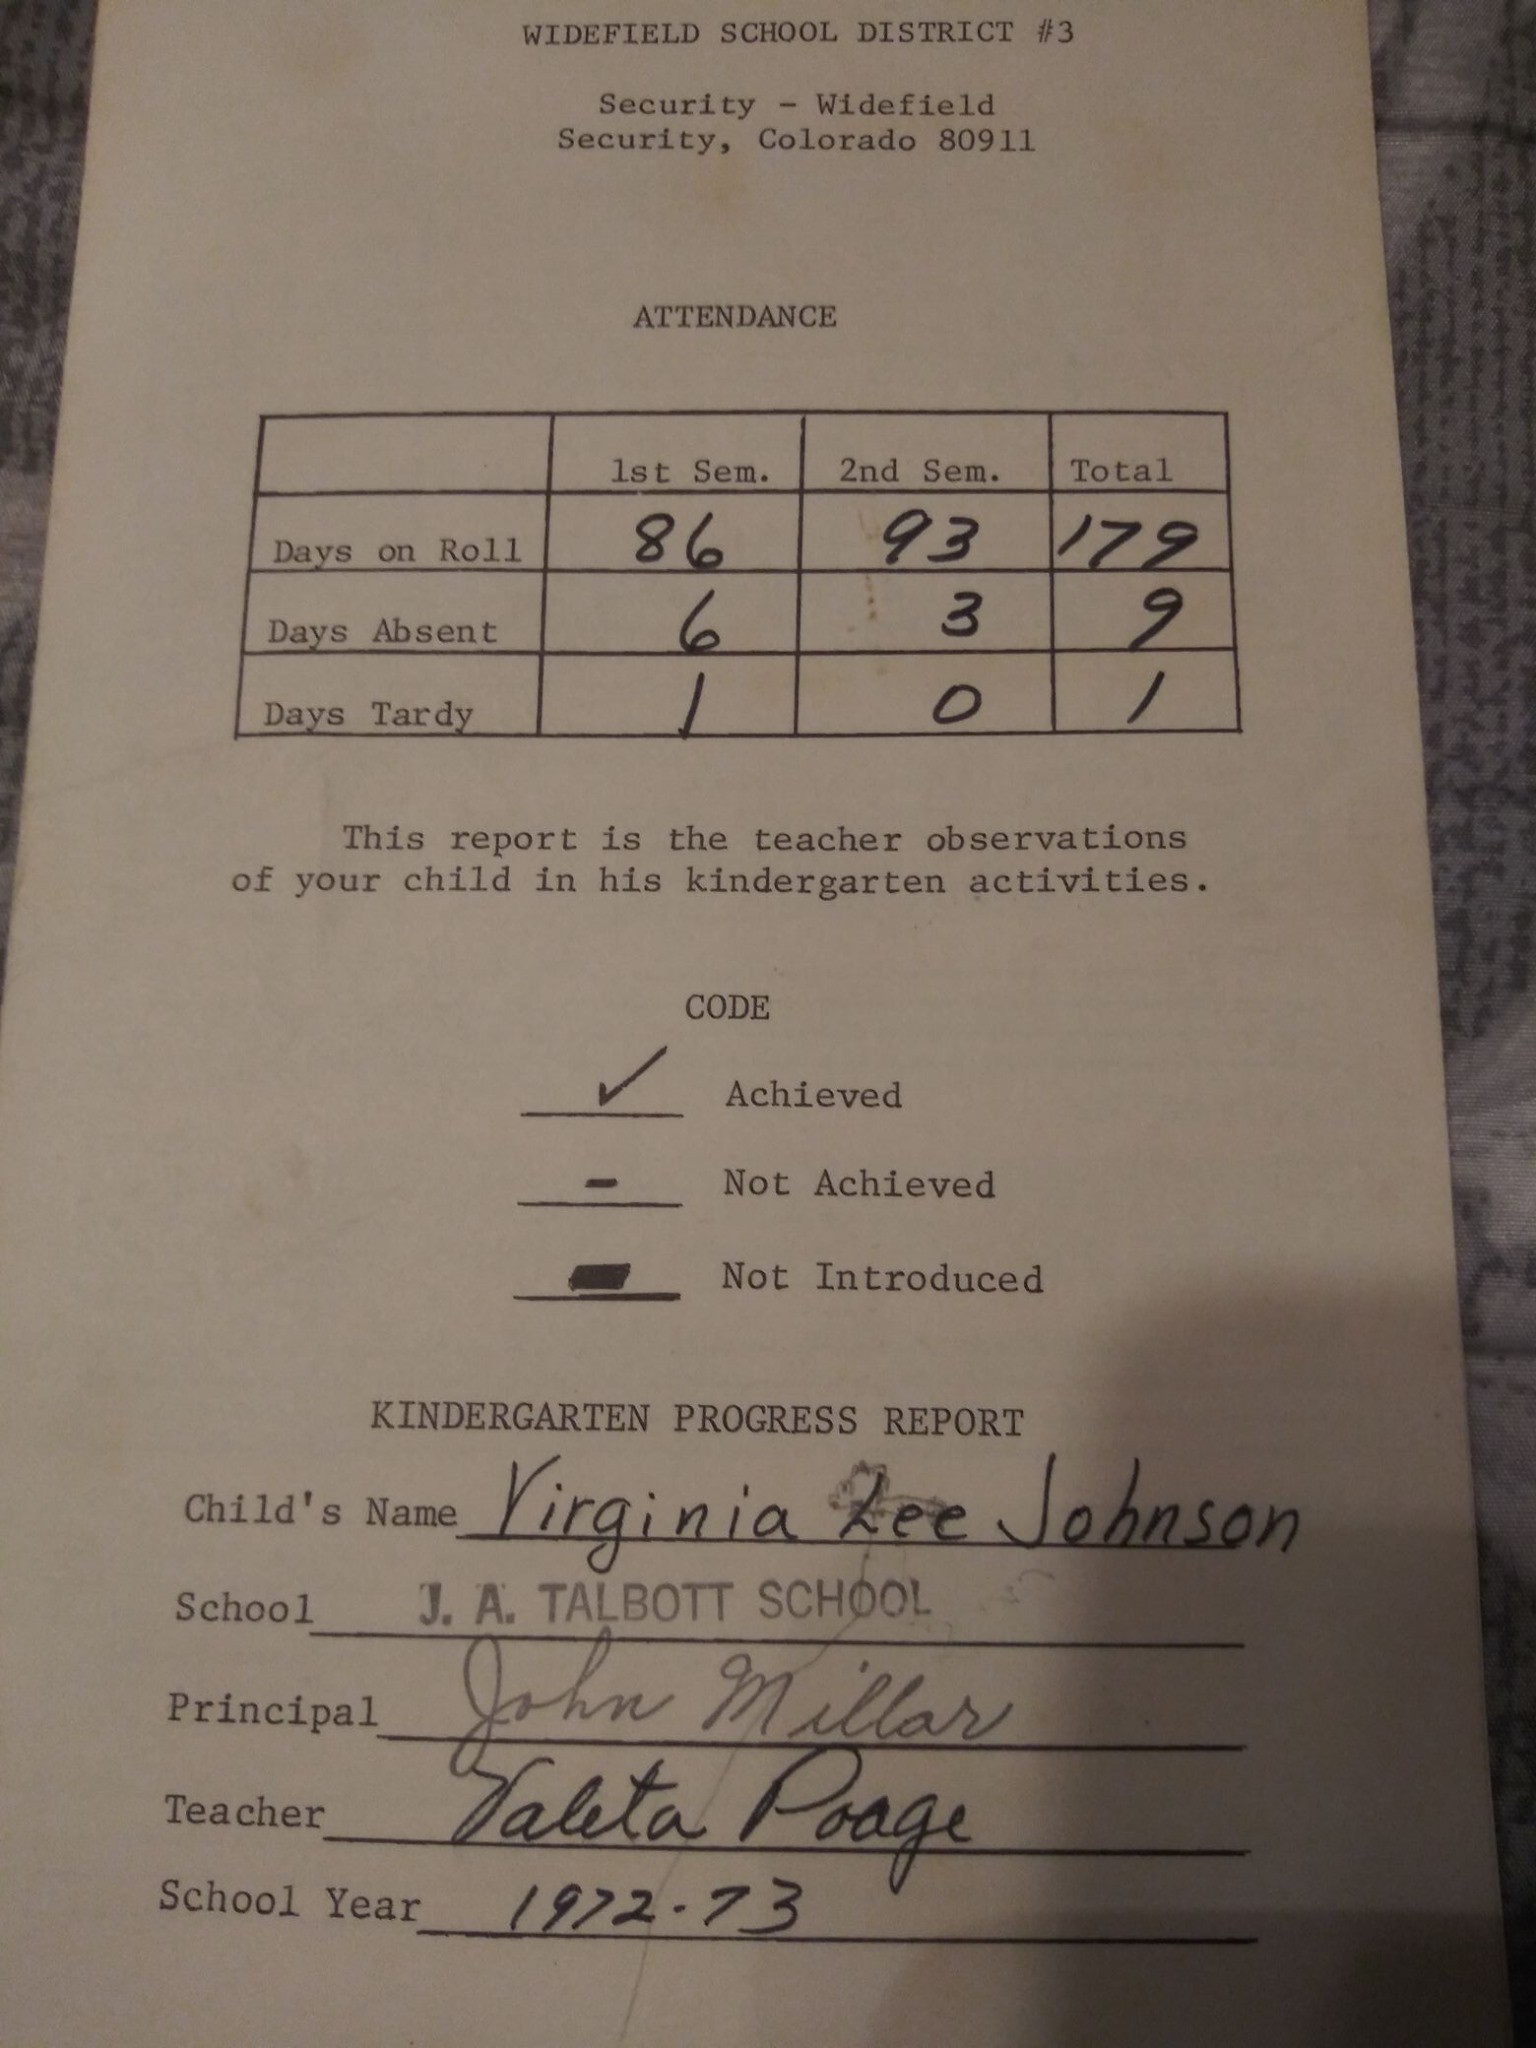 WIDEFIELD SCHOOL DISTRICT #3
Security - Widefield
Security, Colorado 80911
ATTENDANCE
1st Sem. 2nd Sem. Total
Days on Roll 86 93 179
Days Absent 6 3 9
Days Tardy 1 0 1
This report is the teacher observations
of your child in his kindergarten activities.
CODE
✓ Achieved
- Not Achieved
▬ Not Introduced
KINDERGARTEN PROGRESS REPORT
Child's Name Virginia Lee Johnson
School J. A. TALBOTT SCHOOL
Principal John Millar
Teacher Valeta Poage
School Year 1972-73